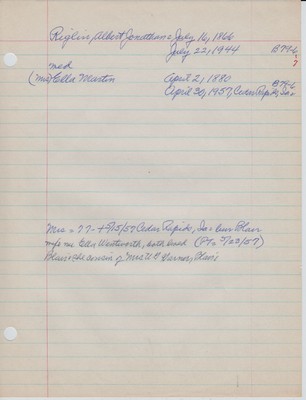 Riglin, Albert Jonathan = July 16, 1866
July 22, 1944 B79-6
7
med
(mrs) Ella Martin April 2, 1880
B79-6
April 30, 1957, Cedar Rapids, Ia.
Mrs = 77 - + 5/5/57 Cedar Rapids, Ia = bur Blair
nee Ella Wentworth, both dead (PT = 5/22/57)
Blair = cousin of Mrs W F Blain's